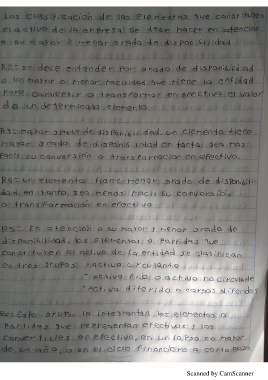 Las clasificación de los elementos que constituyen
el activo de la empresa se debe hacer en atención
a su mayor o menor grado de disponibilidad
R2= se debe entender por grado de disponibilidad
a la mayor o menor facilidad que tiene la entidad
para convertir o transformar en efectivo el valor
de un determinado elemento.
R3= mayor grado de disponibilidad. un elemento tiene
mayor grado de disponibilidad en tanto sea más
fácil su conversión o transformación en efectivo.
R4= un elemento tiene menor grado de disponibili-
dad en tanto sea menos fácil su conversión
o transformación en efectivo
R5= En atención a su mayor y menor grado de
disponibilidad, los elementos o partidas que
constituyen el activo de la entidad se clasifican
en tres grupos: -activo circulante
-activo fijo o activo no circulante
-activo diferido o cargos diferidos
Este grupo lo integran los elementos o
partidas que representan efectivo y los
convertibles en efectivo, en un lapso no mayor
de un año, o en el ciclo financiero a corto plazo
Scanned by CamScanner